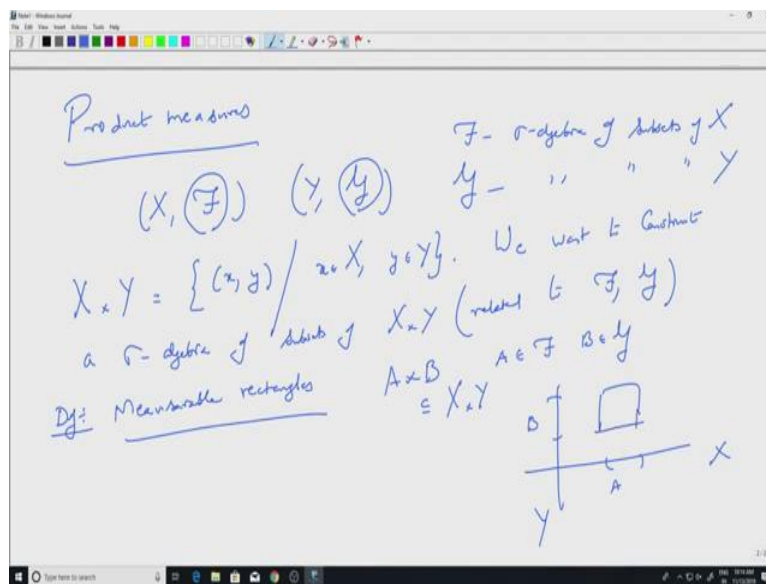 Note1 - Windows Journal
File Edit View Insert Actions Tools Help
Product measures
F - σ-algebra of subsets of X
(X, F) (Y, G) G - " " " Y
X × Y = { (x, y) / x ∈ X, y ∈ Y }. We want to construct
a σ-algebra of subsets of X × Y (related to F, G)
Def: Measurable rectangles A × B A ∈ F B ∈ G
⊆ X × Y
B
X
A
Y
2/2
Type here to search
ENG
IN